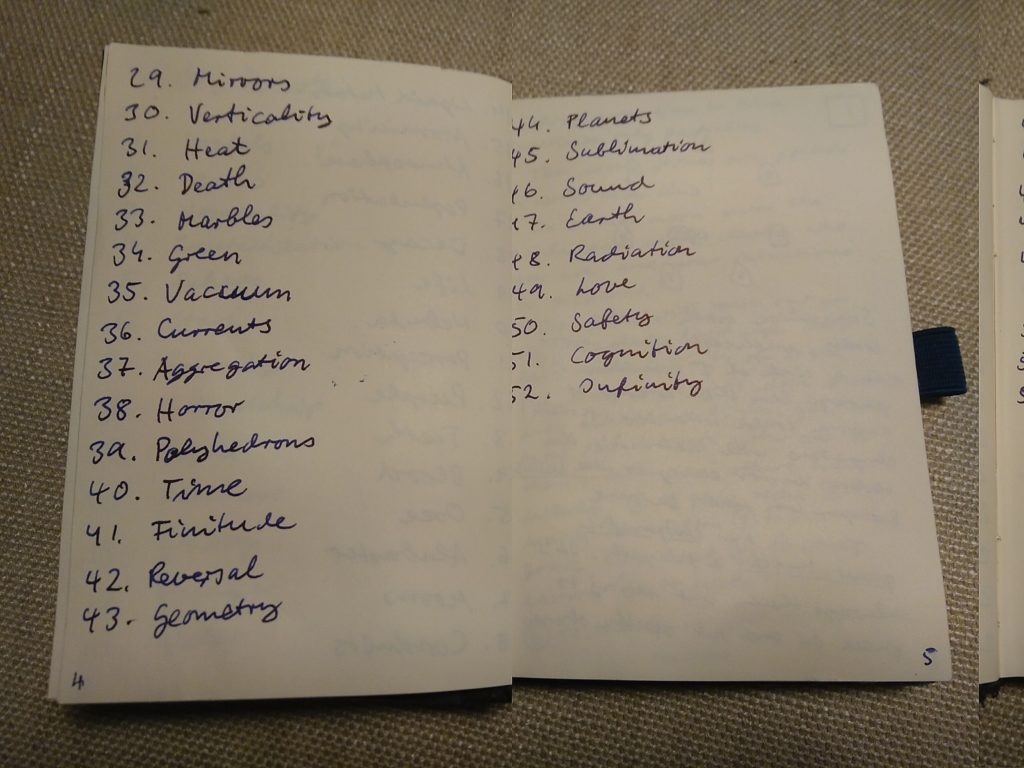 29. Mirrors
30. Verticality
31. Heat
32. Death
33. Marbles
34. Green
35. Vacuum
36. Currents
37. Aggregation
38. Horror
39. Polyhedrons
40. Time
41. Finitude
42. Reversal
43. Geometry
4
44. Planets
45. Sublimation
46. Sound
47. Earth
48. Radiation
49. Love
50. Safety
51. Cognition
52. Infinity
5